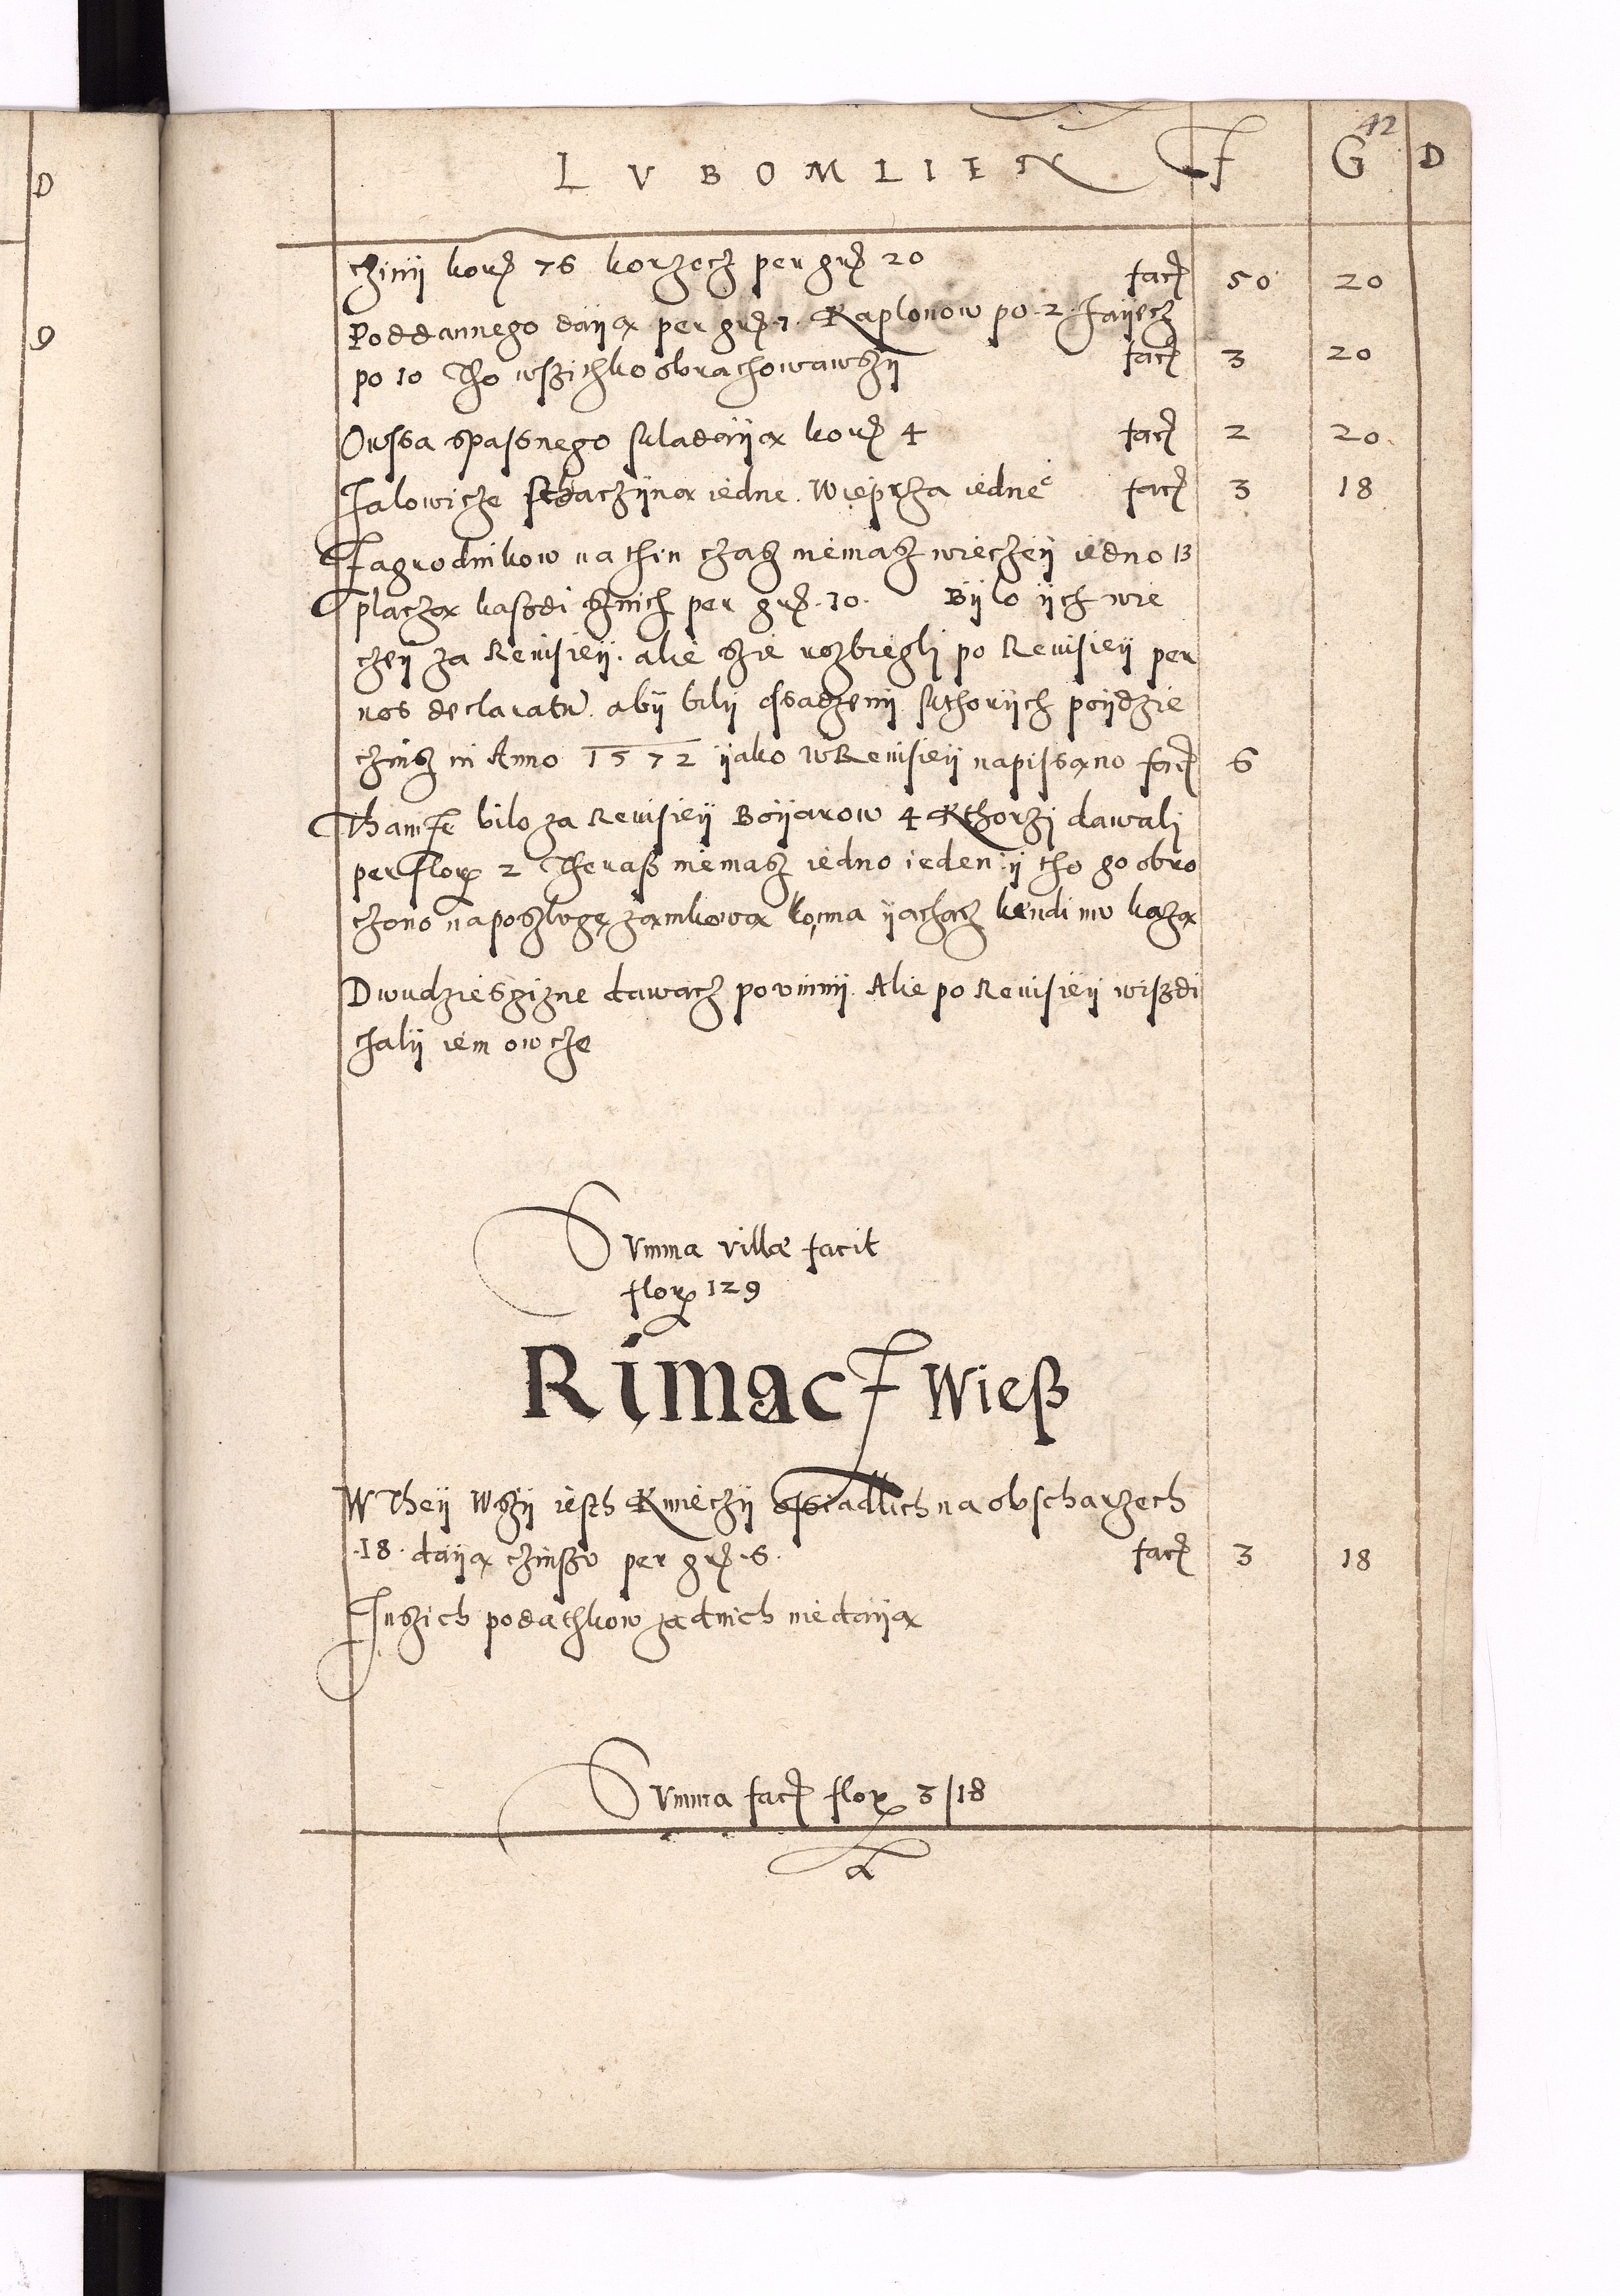 42
LVBOMLIEN F G D
czinij kor 76 korzecz per gr 20 facit 50 20
Poddannego daija per gr 7. Kaplonow po .2. Jaijecz
po 10 Tho wszithko obrachowawszij facit 3 20
Owssa spassnego skladaija kor 4 facit 2 20
Jalowicze sthaczijna iedne. Wieprza iedne facit 3 18
Zagrodnikow na thin czasz niemasz wieczeij iedno 13
placza kaszdi sznich per gr .10. Bijlo ijch wie
czeij za Reuisieij. alie szie rozbiegli po Reuisieij per
nos declaratu. abij bilij ossadzenij skthorijch poijdzie
czinsz in Anno 1572 ijako w Reuisieij napissano facit 6
Thamże bilo za Reuisieij Boijarow 4 Kthorzi dawali
per flor 2 Theraß niemasz iedno ieden ij tho go obro
czono na poszluge zamkowa konna ijachacz kendi mu kaza
Dwudziesgizne dawacz powinnij. Alie po Reuisieij wiszdi
chalij iem owcze
Summa villæ facit
flor 129
Rimacz Wieß
W Theij Wszij iesth Kmieczij ossiadlich na obscharzech
.18. daija czinszu per gr .6. facit 3 18
Inszich podathkow zadnich niedaija
Summa facit flor 3/18
D
9